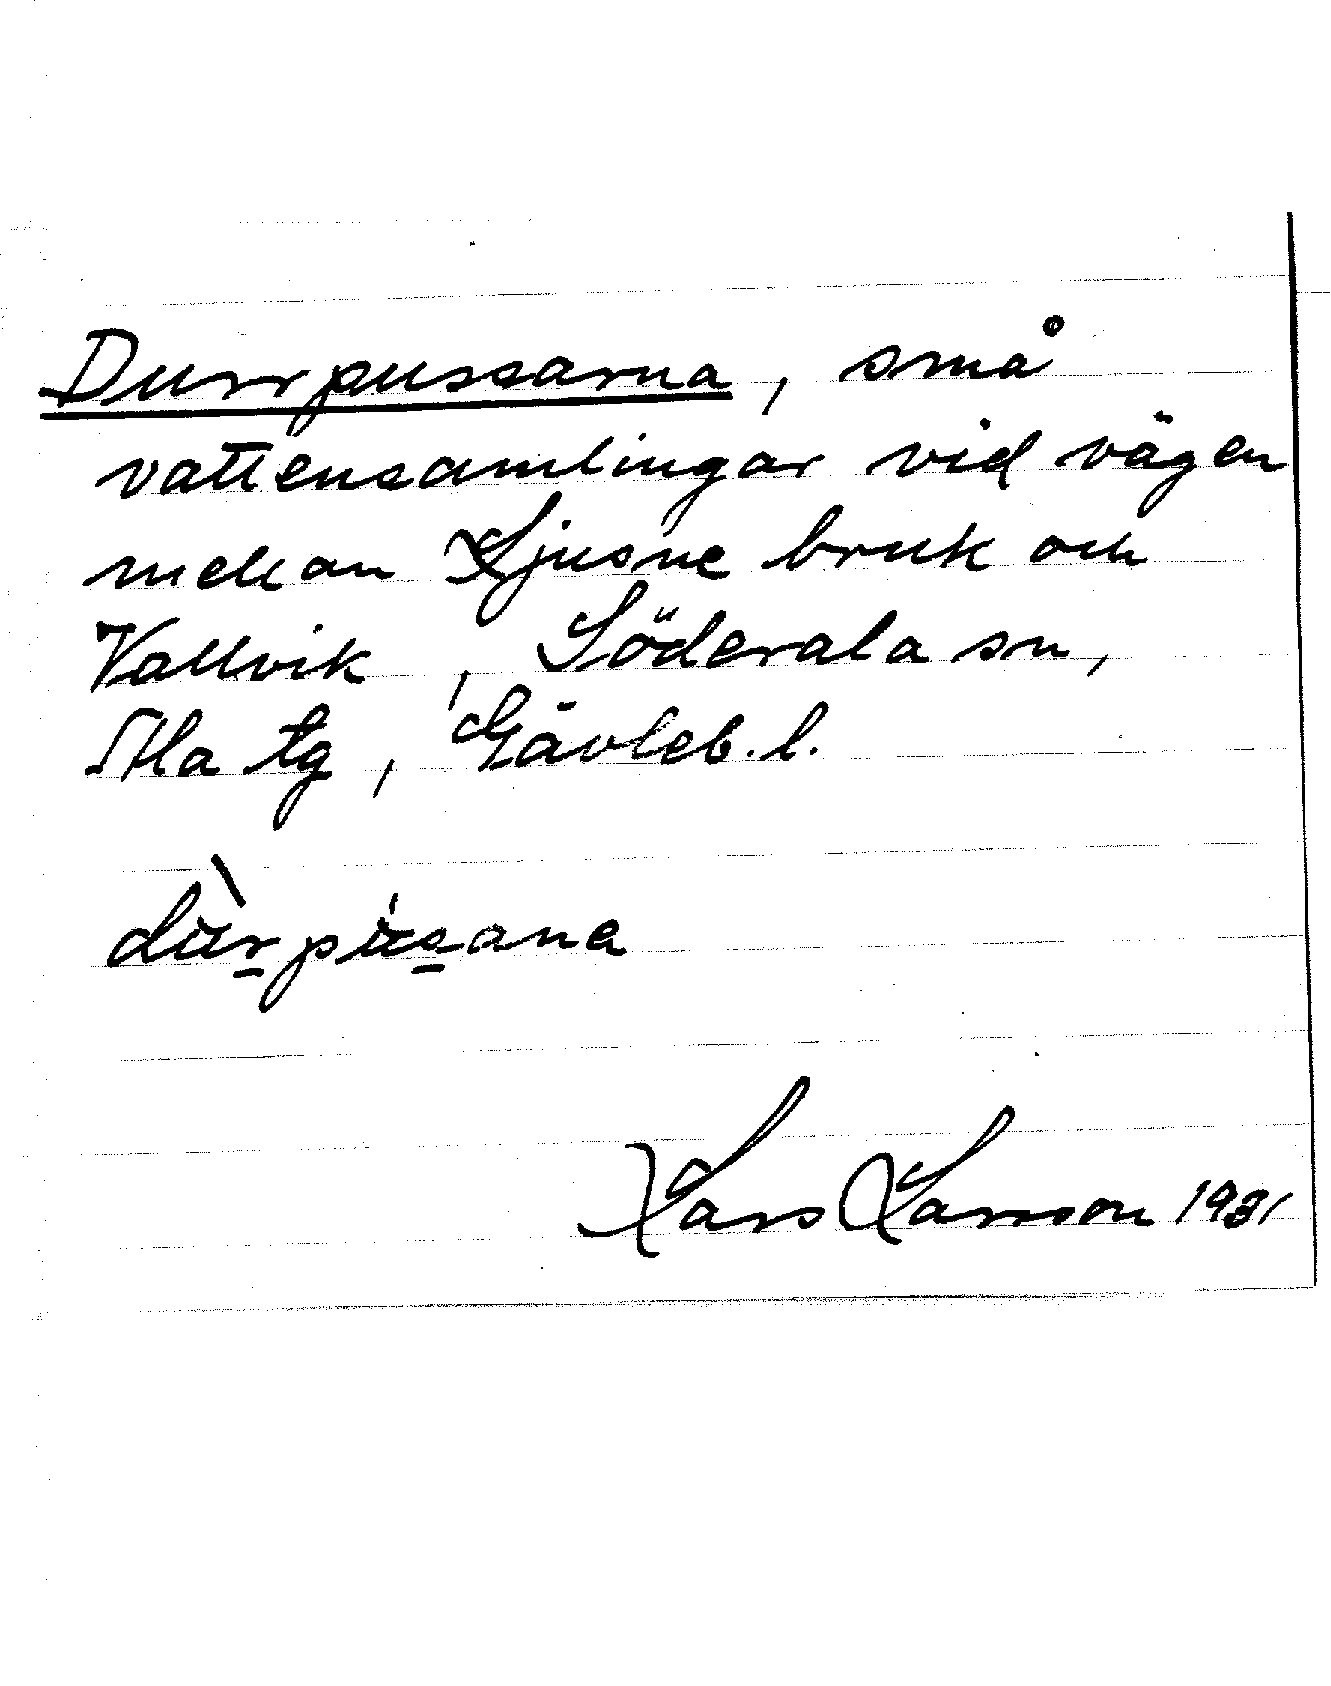 Durrpussarna, små
vattensamlingar vid vägen
mellan Ljusne bruk och
Vallvik, Söderala sn,
Ala tg, Gävleb. l.
dùrpúsana
Lars Larsson 1931